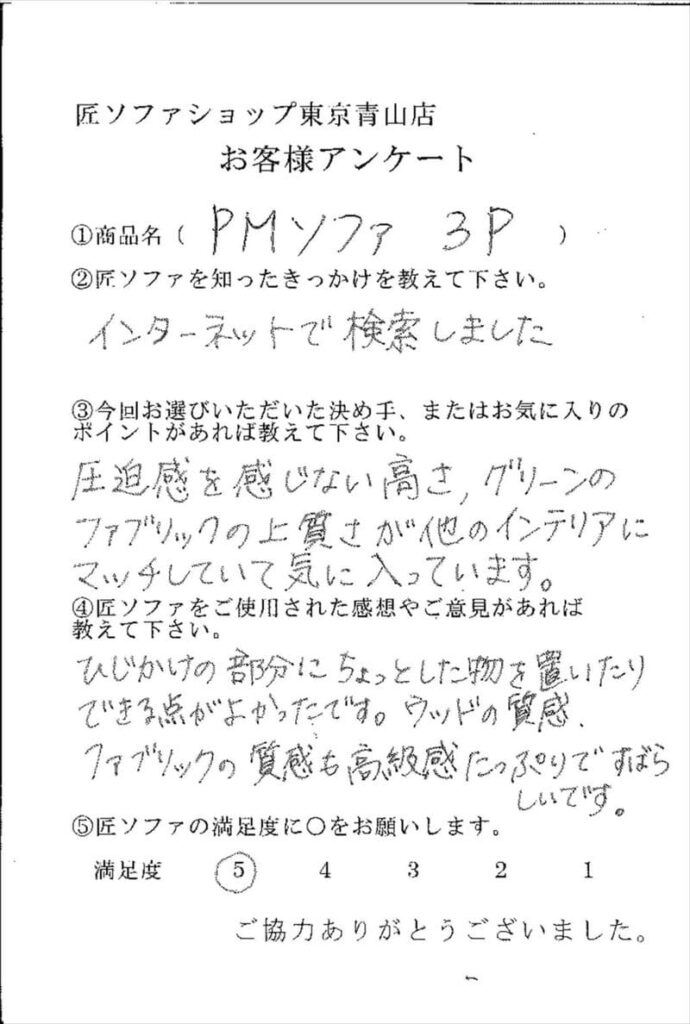 匠ソファショップ東京青山店
お客様アンケート
①商品名（ PMソファ 3P ）
②匠ソファを知ったきっかけを教えて下さい。
インターネットで検索しました
③今回お選びいただいた決め手、またはお気に入りの
ポイントがあれば教えて下さい。
圧迫感を感じない高さ,グリーンの
ファブリックの上質さが他のインテリアに
マッチしていて気に入っています。
④匠ソファをご使用された感想やご意見があれば
教えて下さい。
ひじかけの部分にちょっとした物を置いたり
できる点がよかったです。ウッドの質感、
ファブリックの質感も高級感たっぷりですばら
しいです。
⑤匠ソファの満足度に〇をお願いします。
満足度 5 4 3 2 1
ご協力ありがとうございました。